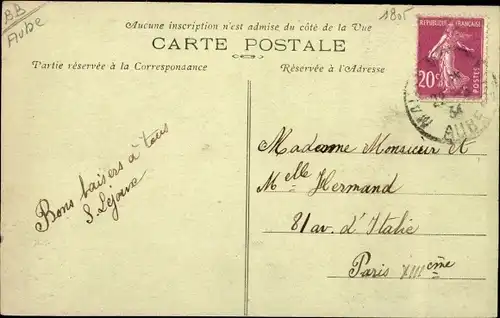 BB
Aube
1805
Aucune inscription n'est admise du côté de la Vue
CARTE POSTALE
Partie réservée à la Correspondance
Réservée à l'Adresse
REPUBLIQUE FRANÇAISE
20c
POSTES
34
AUBE
Bons baisers à tous
S. Lejoux
Madame Monsieur et
Melle Hermand
81 av. d'Italie
Paris XIIIeme